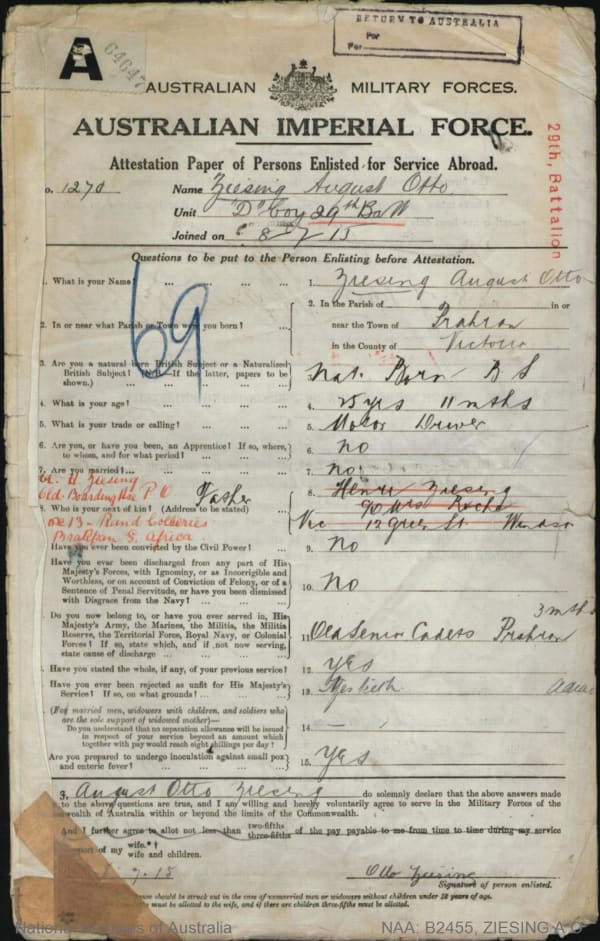 RETURN TO AUSTRALIA
For
Per
A
64647
AUSTRALIAN MILITARY FORCES.
AUSTRALIAN IMPERIAL FORCE.
29th, Battalion
Attestation Paper of Persons Enlisted for Service Abroad.
o. 1270 Name Ziesing August Otto
Unit "D" Coy 29th Batt
Joined on 8/7/15
Questions to be put to the Person Enlisting before Attestation.
69
1. What is your Name? ... ... ... ... 1. Ziesing August Otto
2. In or near what Parish or Town were you born? ...
2. In the Parish of in or
near the Town of Prahran
in the County of Victoria
3. Are you a natural born British Subject or a Naturalized
British Subject? (N.B.—If the latter, papers to be
shown.) ... ... ... ... Nat. Born B S
4. What is your age? ... ... ... ... 4. 25 yrs 11 mths
5. What is your trade or calling? ... ... ... 5. Motor Driver
6. Are you, or have you been, an Apprentice? If so, where,
to whom, and for what period? ... ... ... 6. no
7. Are you married? ... ... ... ... 7. no
H. Ziesing
Old Boarding Hse P O
Father
8. Who is your next of kin? (Address to be stated) 8. Henri Ziesing
Rand Collieries
Brakpan S. Africa
Vic 12 Green St Windsor
Have you ever been convicted by the Civil Power? ... 9. No
Have you ever been discharged from any part of His
Majesty's Forces, with Ignominy, or as Incorrigible and
Worthless, or on account of Conviction of Felony, or of a
Sentence of Penal Servitude, or have you been dismissed
with Disgrace from the Navy? ... ... ... 10. No
Do you now belong to, or have you ever served in, His
Majesty's Army, the Marines, the Militia, the Militia
Reserve, the Territorial Force, Royal Navy, or Colonial
Forces? If so, state which, and if not now serving,
state cause of discharge ... ... ... 3 mths
11. Old Senior Cadets Prahran
Have you stated the whole, if any, of your previous service? 12. Yes
Have you ever been rejected as unfit for His Majesty's
Service? If so, on what grounds? ... ... 13. Yes teeth
(For married men, widowers with children, and soldiers who
are the sole support of widowed mother)—
Do you understand that no separation allowance will be issued
in respect of your service beyond an amount which
together with pay would reach eight shillings per day? 14. —
Are you prepared to undergo inoculation against small pox
and enteric fever? ... ... ... ... 15. Yes
August Otto Ziesing do solemnly declare that the above answers made
to the above questions are true, and I am willing and hereby voluntarily agree to serve in the Military Forces of the
wealth of Australia within or beyond the limits of the Commonwealth.
And I further agree to allot not less than two-fifths
three-fifths of the pay payable to me from time to time during my service
port of my wife.*†
wife and children.
7.15 Otto Ziesing
Signature of person enlisted.
should be struck out in the case of unmarried men or widowers without children under 18 years of age.
must be allotted to the wife, and if there are children three-fifths must be allotted.
National Archives of Australia NAA: B2455, ZIESING A O